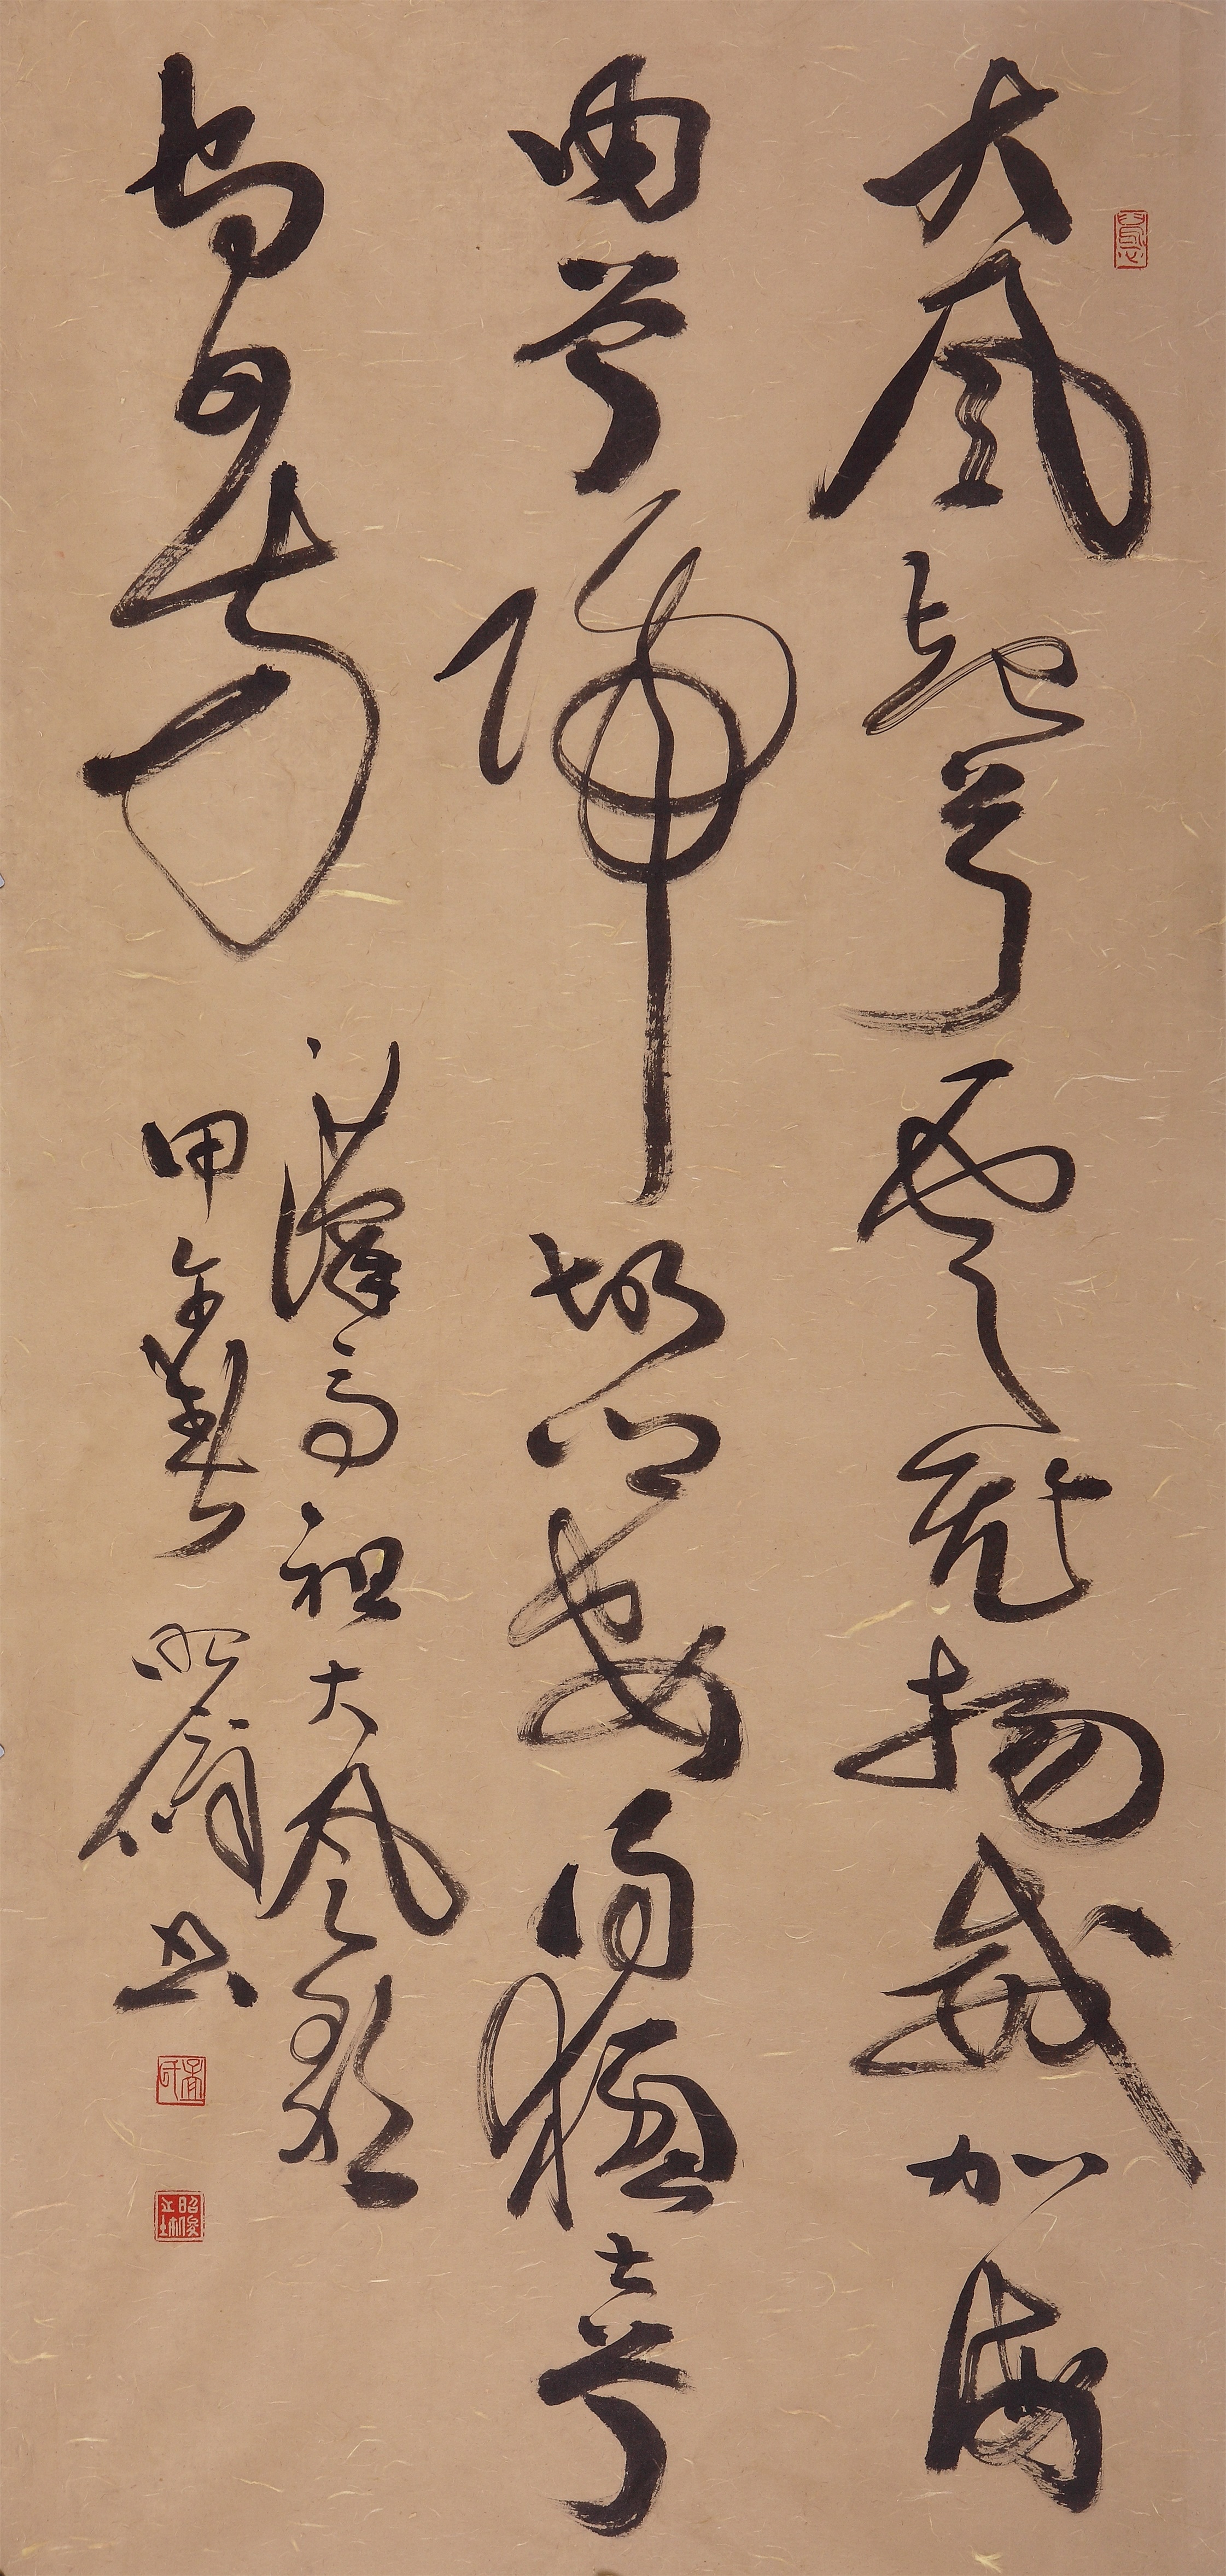 大風起兮雲飛揚威加海
内兮歸故鄉安得猛士兮
守四方
漢高祖大風歌
甲午